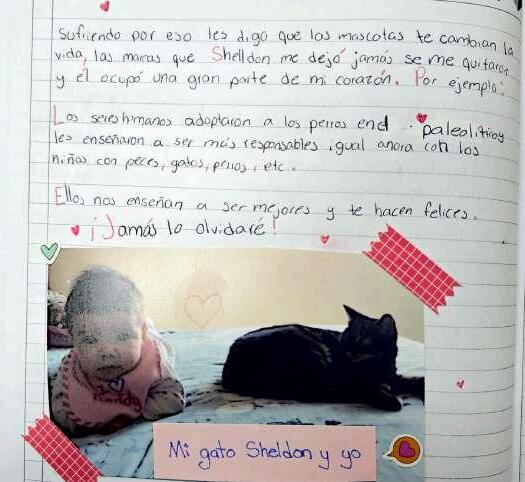 Sufriendo por eso les digo que las mascotas te cambian la
vida, las marcas que Shelldon me dejó jamás se me quitaron
y él ocupó una gran parte de mi corazón. Por ejemplo:
Los seres humanos adoptaron a los perros end paleolitico y
les enseñaron a ser más responsables, igual ahora con los
niños con peces, gatos, perros, etc.
Ellos nos enseñan a ser mejores y te hacen felices.
¡Jamás lo olvidaré!
Mi gato Sheldon y yo